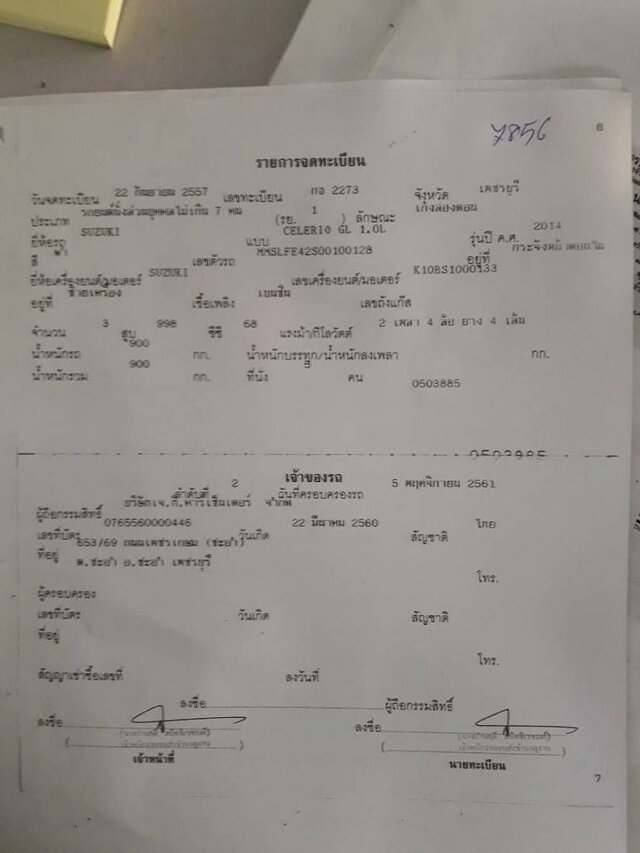 7856
6
รายการจดทะเบียน
วันจดทะเบียน 22 กันยายน 2557 เลขทะเบียน กง 2273 จังหวัด เพชรบุรี
ประเภท รถยนต์นั่งส่วนบุคคลไม่เกิน 7 คน (รย. 1 ) ลักษณะ เก๋งสองตอน
ยี่ห้อรถ SUZUKI แบบ CELERIO GL 1.0L รุ่นปี ค.ศ. 2014
สี เลขตัวรถ MMSLFE42S00100128 อยู่ที่
ยี่ห้อเครื่องยนต์/มอเตอร์ SUZUKI เลขเครื่องยนต์/มอเตอร์ K10BS1000133
อยู่ที่ เชื้อเพลิง เบนซิน เลขถังแก๊ส
จำนวน 3 สูบ 998 ซีซี 68 แรงม้า/กิโลวัตต์ 2 เพลา 4 ล้อ ยาง 4 เส้น
น้ำหนักรถ 900 กก. น้ำหนักบรรทุก/น้ำหนักลงเพลา กก.
น้ำหนักรวม 900 กก. ที่นั่ง คน
0503885
0503885
เจ้าของรถ
ลำดับที่ 2 วันที่ครอบครองรถ 5 พฤศจิกายน 2561
ผู้ถือกรรมสิทธิ์ บริษัทเจ.ที.คาร์เซ็นเตอร์ จำกัด
เลขที่บัตร 0765560000446 วันเกิด 22 มีนาคม 2560 สัญชาติ ไทย
ที่อยู่ 653/69 ถนนเพชรเกษม (ชะอำ)
ต.ชะอำ อ.ชะอำ เพชรบุรี
โทร.
ผู้ครอบครอง
เลขที่บัตร วันเกิด สัญชาติ
ที่อยู่
โทร.
สัญญาเช่าซื้อเลขที่ ลงวันที่
ลงชื่อ ผู้ถือกรรมสิทธิ์
ลงชื่อ ลงชื่อ
เจ้าหน้าที่ นายทะเบียน
7